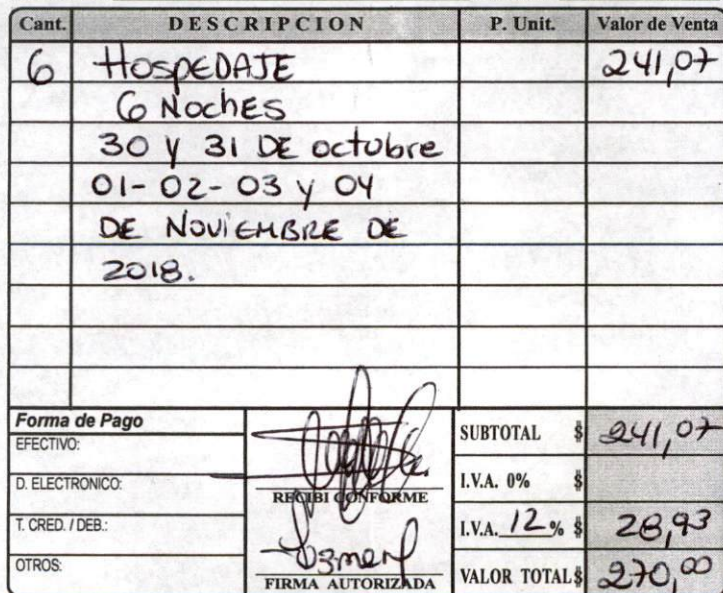 Cant. DESCRIPCION P. Unit. Valor de Venta
6 HOSPEDAJE 241,07
6 NOCHES
30 Y 31 DE octubre
01-02-03 y 04
DE NOVIEMBRE DE
2018.
Forma de Pago
EFECTIVO:
D. ELECTRONICO:
T. CRED. / DEB.:
OTROS:
RECIBI CONFORME
FIRMA AUTORIZADA
SUBTOTAL $ 241,07
I.V.A. 0% $
I.V.A. 12 % $ 28,93
VALOR TOTAL $ 270,00